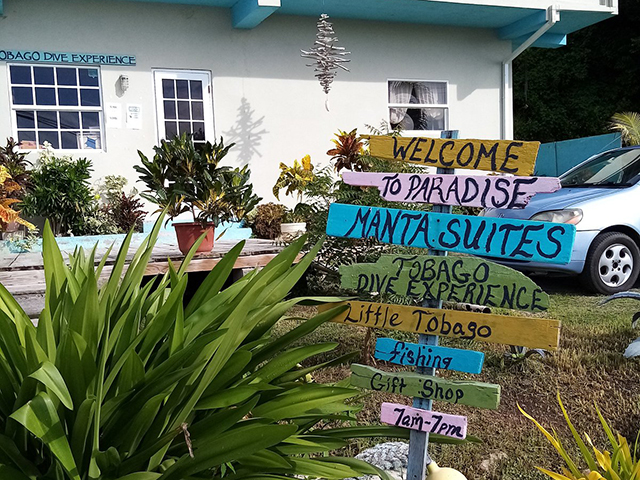 OBAGO DIVE EXPERIENCE
WELCOME
TO PARADISE
MANTA SUITES
TOBAGO
DIVE EXPERIENCE
Little Tobago
fishing
Gift Shop
7am-7pm